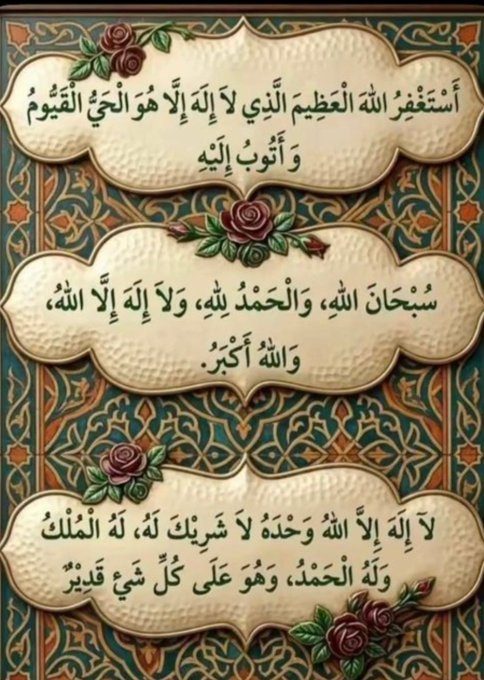 أَسْتَغْفِرُ اللهَ الْعَظِيمَ الَّذِي لاَ إِلَهَ إِلَّا هُوَ الْحَيُّ الْقَيُّومُ
وَ أَتُوبُ إِلَيْهِ
سُبْحَانَ اللهِ، وَالْحَمْدُ لِلهِ، وَلاَ إِلَهَ إِلَّا اللهُ،
وَاللهُ أَكْبَرُ.
لَآ إِلَهَ إِلاَّ اللهُ وَحْدَهُ لاَ شَرِيْكَ لَهُ، لَهُ الْمُلْكُ
وَلَهُ الْحَمْدُ، وَهُوَ عَلَى كُلِّ شَيْءٍ قَدِيْرٌ